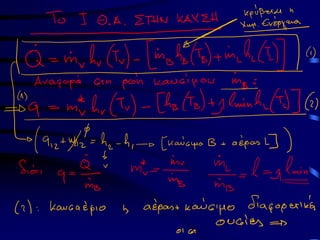 ΤΟ Ι Θ.Α. ΣΤΗΝ ΚΑΥΣΗ
κρύβεται η χημ. Ενέργεια
Q̇ = ṁᵥhᵥ(Tᵥ) - [ṁ_B h_B(T_B) + ṁ_L h_L(T_L)] (1)
Αναφορά στη ροή καυσίμου ṁ_B:
(1) ⇒ q = m*ᵥhᵥ(Tᵥ) - [h_B(T_B) + λ lmin h_L(T_L)] (2)
(q₁₂ + w₁₂ = h₂ - h₁ → [καύσιμο B + αέρας L])
διότι q = Q̇/ṁ_B m*ᵥ = ṁᵥ/ṁ_B ṁ_L/ṁ_B = l = λ lmin
(2): καυσαέριο η αέρας + καύσιμο διαφορετικές
ουσίες ⇒